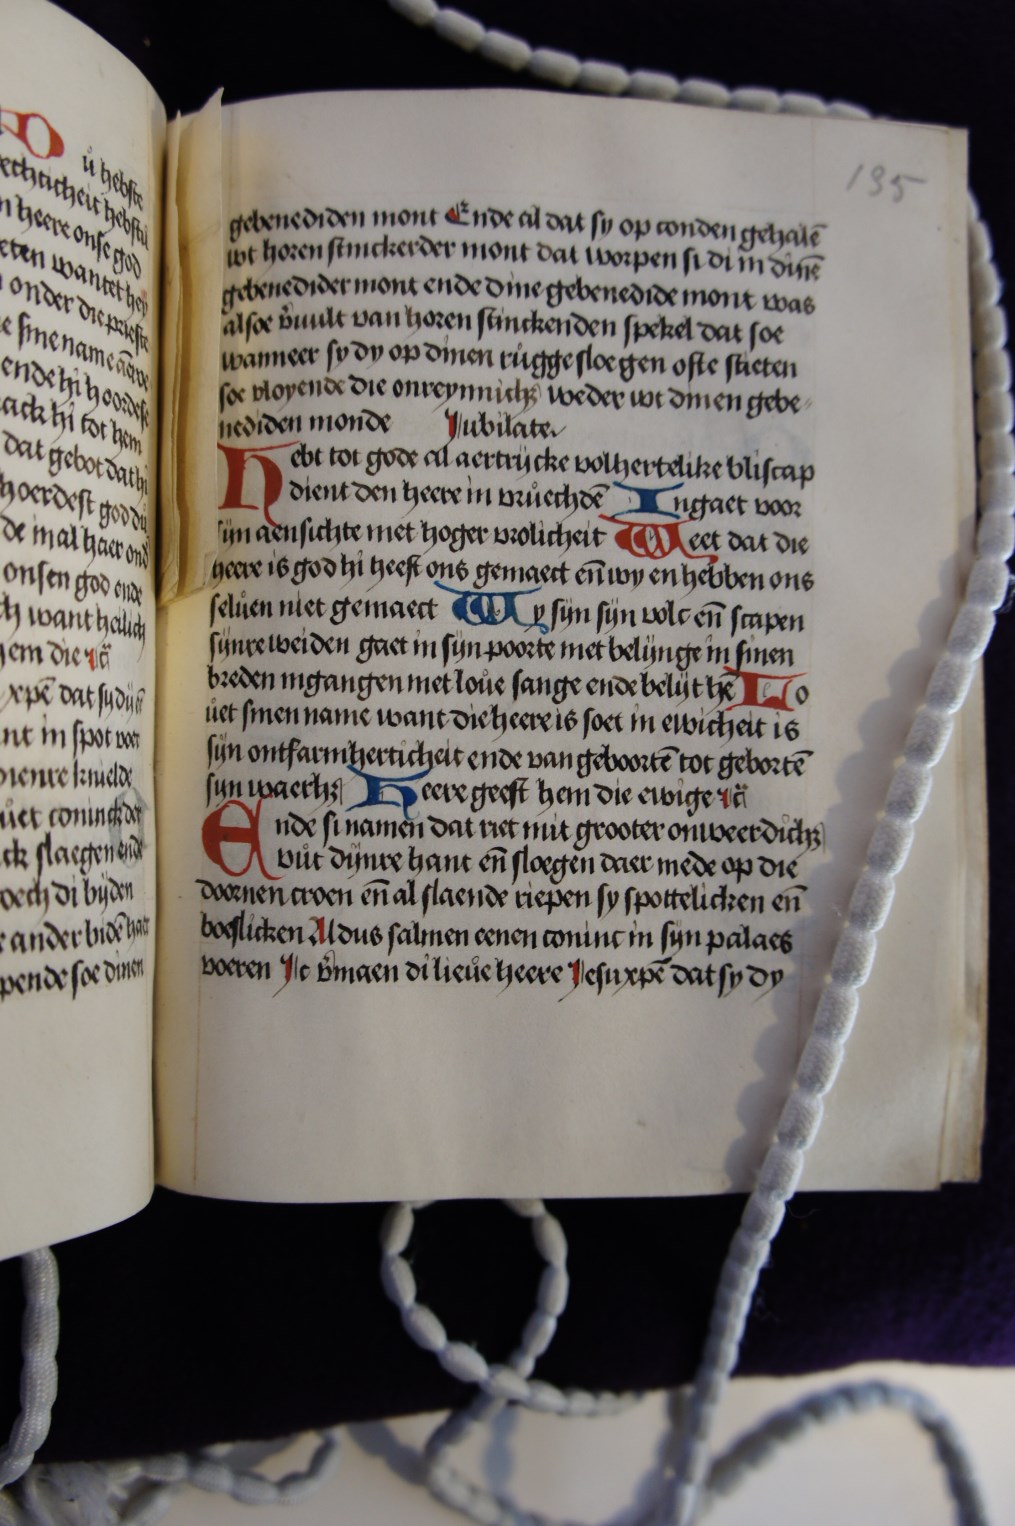 ů hebste
echticheit hebstu
n heere onse god
eten want et hey
onder die prieste
sinen name aēre
ende hi hoorde se
ack hi tot hem
dat gebot dat hi
hoerdest god du
de mal haer ond
onsen god ende
ch want heilich
hem die
xpē dat sy dy
nt in spot voer
dienre knielde
ůet coninck der
ck slaegen ende
oech di byden
ander biden haer
pende soe dinen
135
gebenediden mont Ende al dat sy op conden gehalē
wt horen stinckerder mont dat worpen si di in dinē
gebenedider mont ende dine gebenedide mont was
alsoe v̄vult van horen stinckenden spekel dat soe
wanneer sy dy op dinen růgge sloegen ofte stieten
soe vloyende die onreynnichꝫ weder wt dinen gebe
nediden monde Jubilate
Hebt tot gode al aertrijcke volhertelike bliscap
dient den heere in vrůechdē Ingaet voor
sijn aensichte met hoger vrolicheit Weet dat die
heere is god hi heeft ons gemaect eñ wy en hebben ons
selůen niet gemaect Wy sijn sijn volc eñ scapen
sijnre weiden gaet in sijn poorte met belijnge in sinen
breden ingangen met loůe sange ende belijt hē Lo
ůet sinen name want die heere is soet in ewicheit is
sijn ontfarmherticheit ende van geboortē tot gebortē
sijn waerhꝫ Heere geeft hem die ewige rā
Ende si namen dat riet mit grooter onweerdichꝫ
vůt dijnre hant eñ sloegen daer mede op die
doornen croen eñ al slaende riepen sy spottelicken eñ
boeslicken Aldus salmen eenen coninc in sijn palaes
voeren Jc v̄maen di lieůe heere Jesu xpē dat sy dy